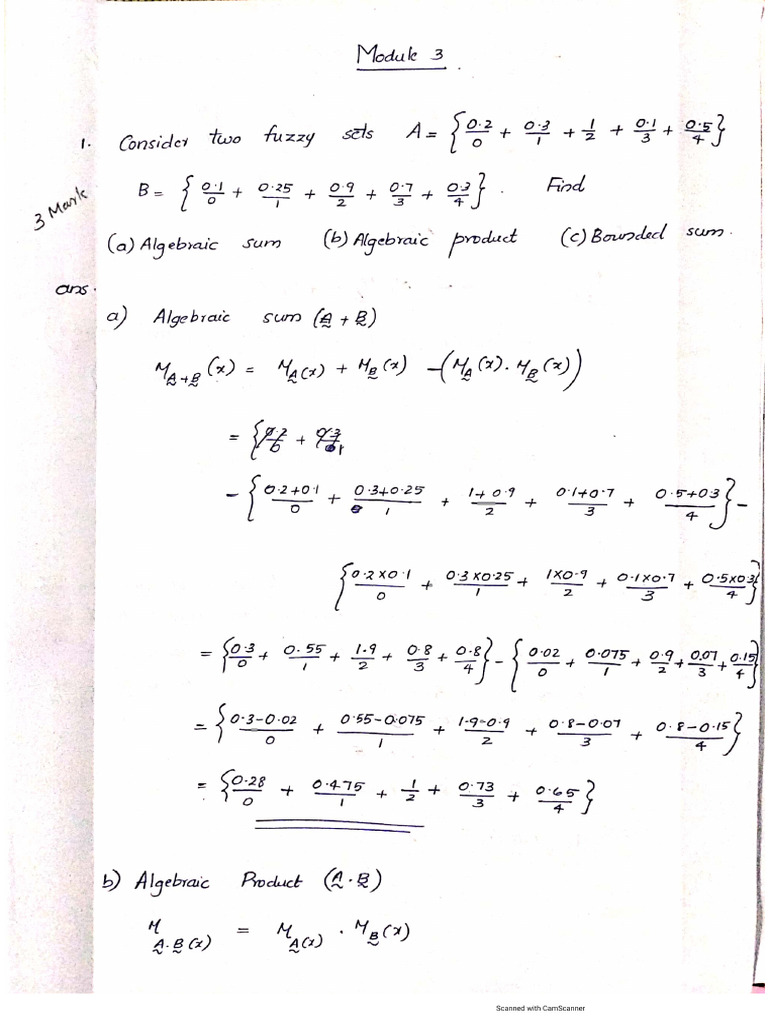 Module 3
1. Consider two fuzzy sets A = {0.2/0 + 0.3/1 + 1/2 + 0.1/3 + 0.5/4}
3 Mark
B = {0.1/0 + 0.25/1 + 0.9/2 + 0.7/3 + 0.3/4}. Find
(a) Algebraic sum (b) Algebraic product (c) Bounded sum.
ans.
a) Algebraic sum (A + B)
M A+B (x) = M A(x) + M B (x) - (M A (x) . M B (x))
= {0.2/0 + 0.3/1
- {0.2+0.1/0 + 0.3+0.25/1 + 1+0.9/2 + 0.1+0.7/3 + 0.5+0.3/4} -
{0.2×0.1/0 + 0.3×0.25/1 + 1×0.9/2 + 0.1×0.7/3 + 0.5×0.3/4}
= {0.3/0 + 0.55/1 + 1.9/2 + 0.8/3 + 0.8/4} - {0.02/0 + 0.075/1 + 0.9/2 + 0.07/3 + 0.15/4}
= {0.3-0.02/0 + 0.55-0.075/1 + 1.9-0.9/2 + 0.8-0.07/3 + 0.8-0.15/4}
= {0.28/0 + 0.475/1 + 1/2 + 0.73/3 + 0.65/4}
b) Algebraic Product (A . B)
M A.B (x) = M A(x) . M B (x)
Scanned with CamScanner